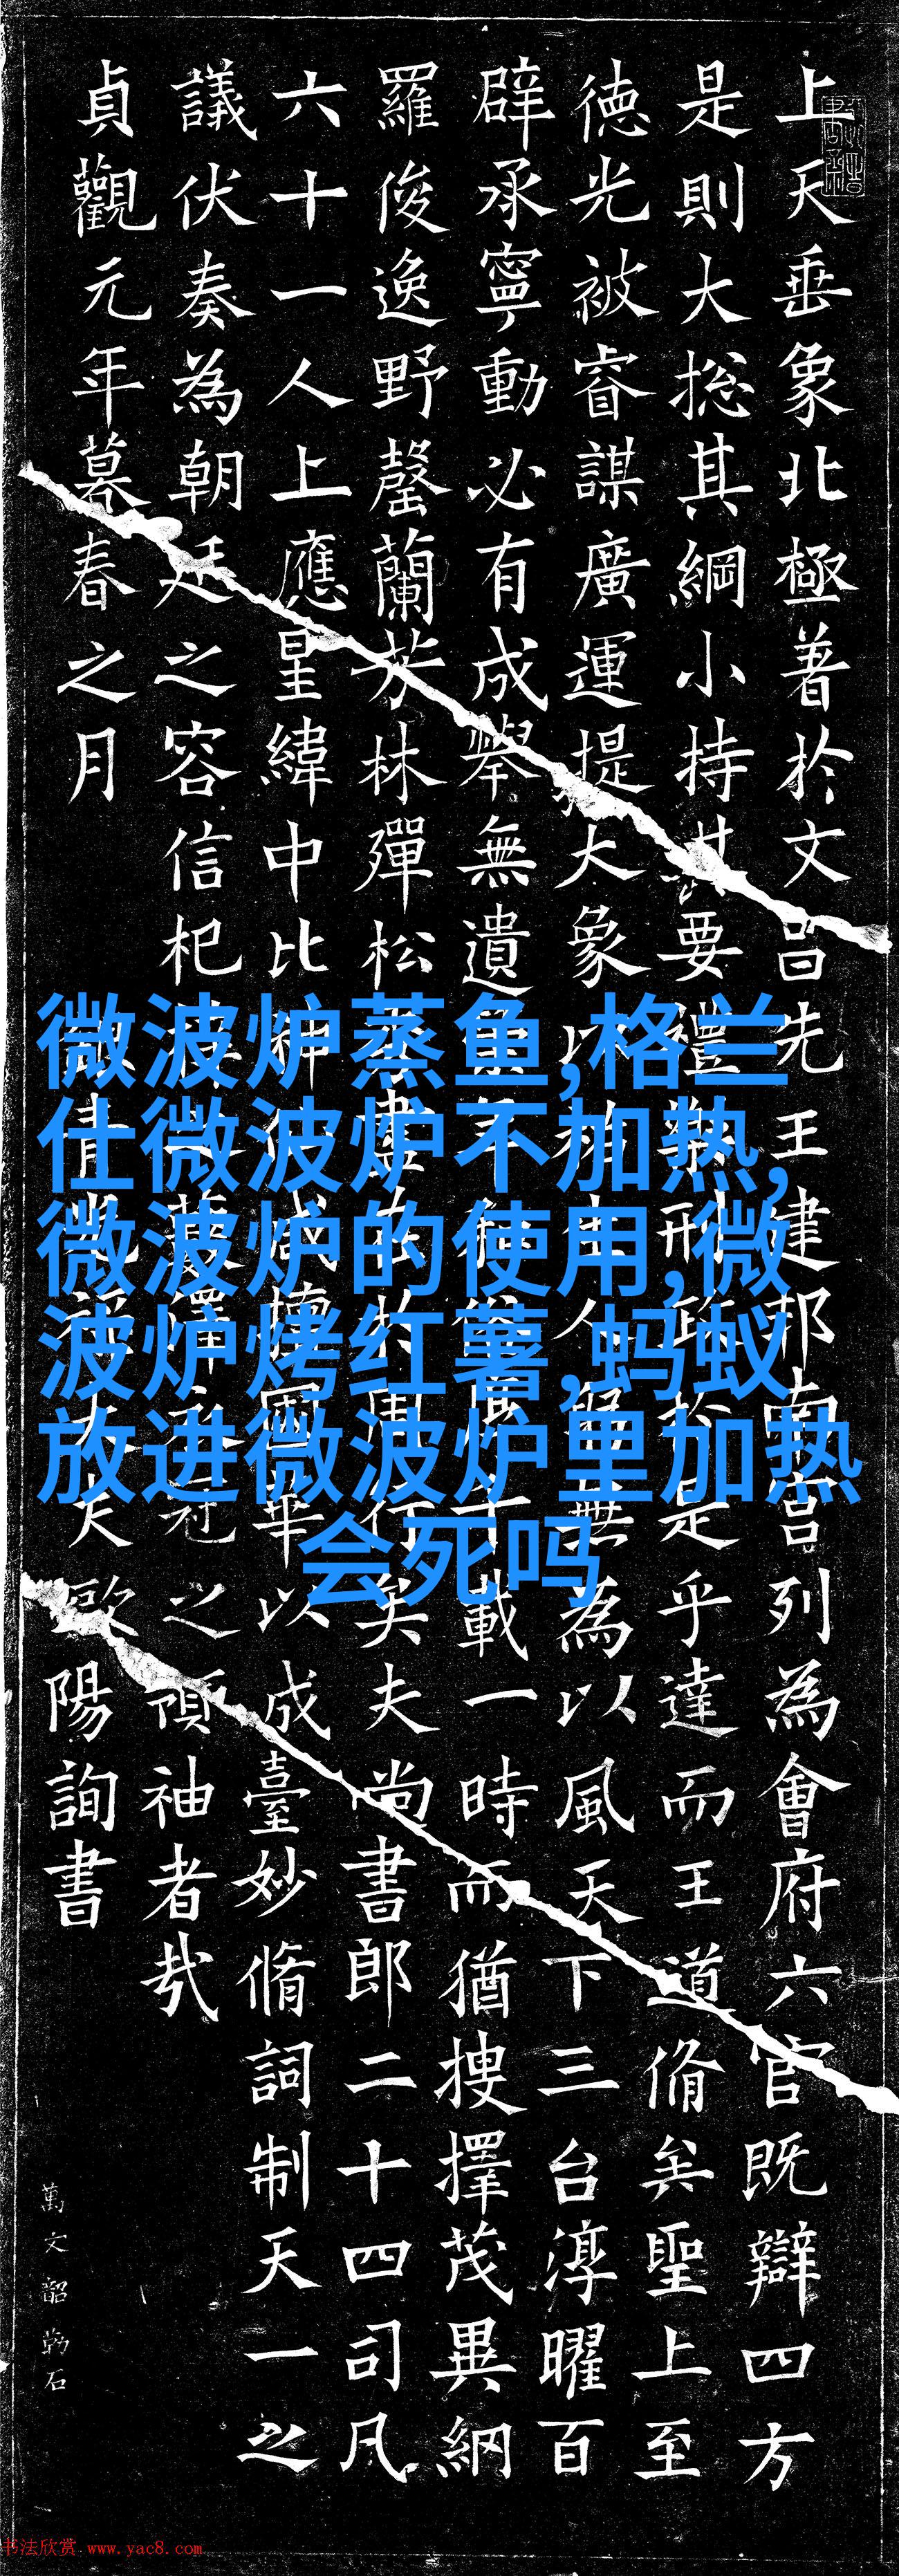 上天垂象北極著於文昌先王建邦南宮列為會府六官既辯四方
是則大揔其綱小持其要禮刑於是乎達而王道脩矣聖上至
徳光被睿謀廣運提大象以生人無為以風天下三台淳曜百
辟承寧動必有成舉無遺載一時而猶搜擇茂異網
羅俊逸野罄蘭芳林殫松盡周行矣夫尚書郎二十四司凡
六十一人上應星緯中比神咸國華以成臺妙脩詞制天一之
議伏奏為朝廷之容信杞梓澤衣冠之領袖者哉
貞觀元年暮春之月
青光大夫歐陽詢書
萬文韶勒石
微波炉蒸鱼,格兰
仕微波炉不加热,
微波炉的使用,微
波炉烤红薯,蚂蚁
放进微波炉里加热
会死吗
书法欣赏 www.yac8.com